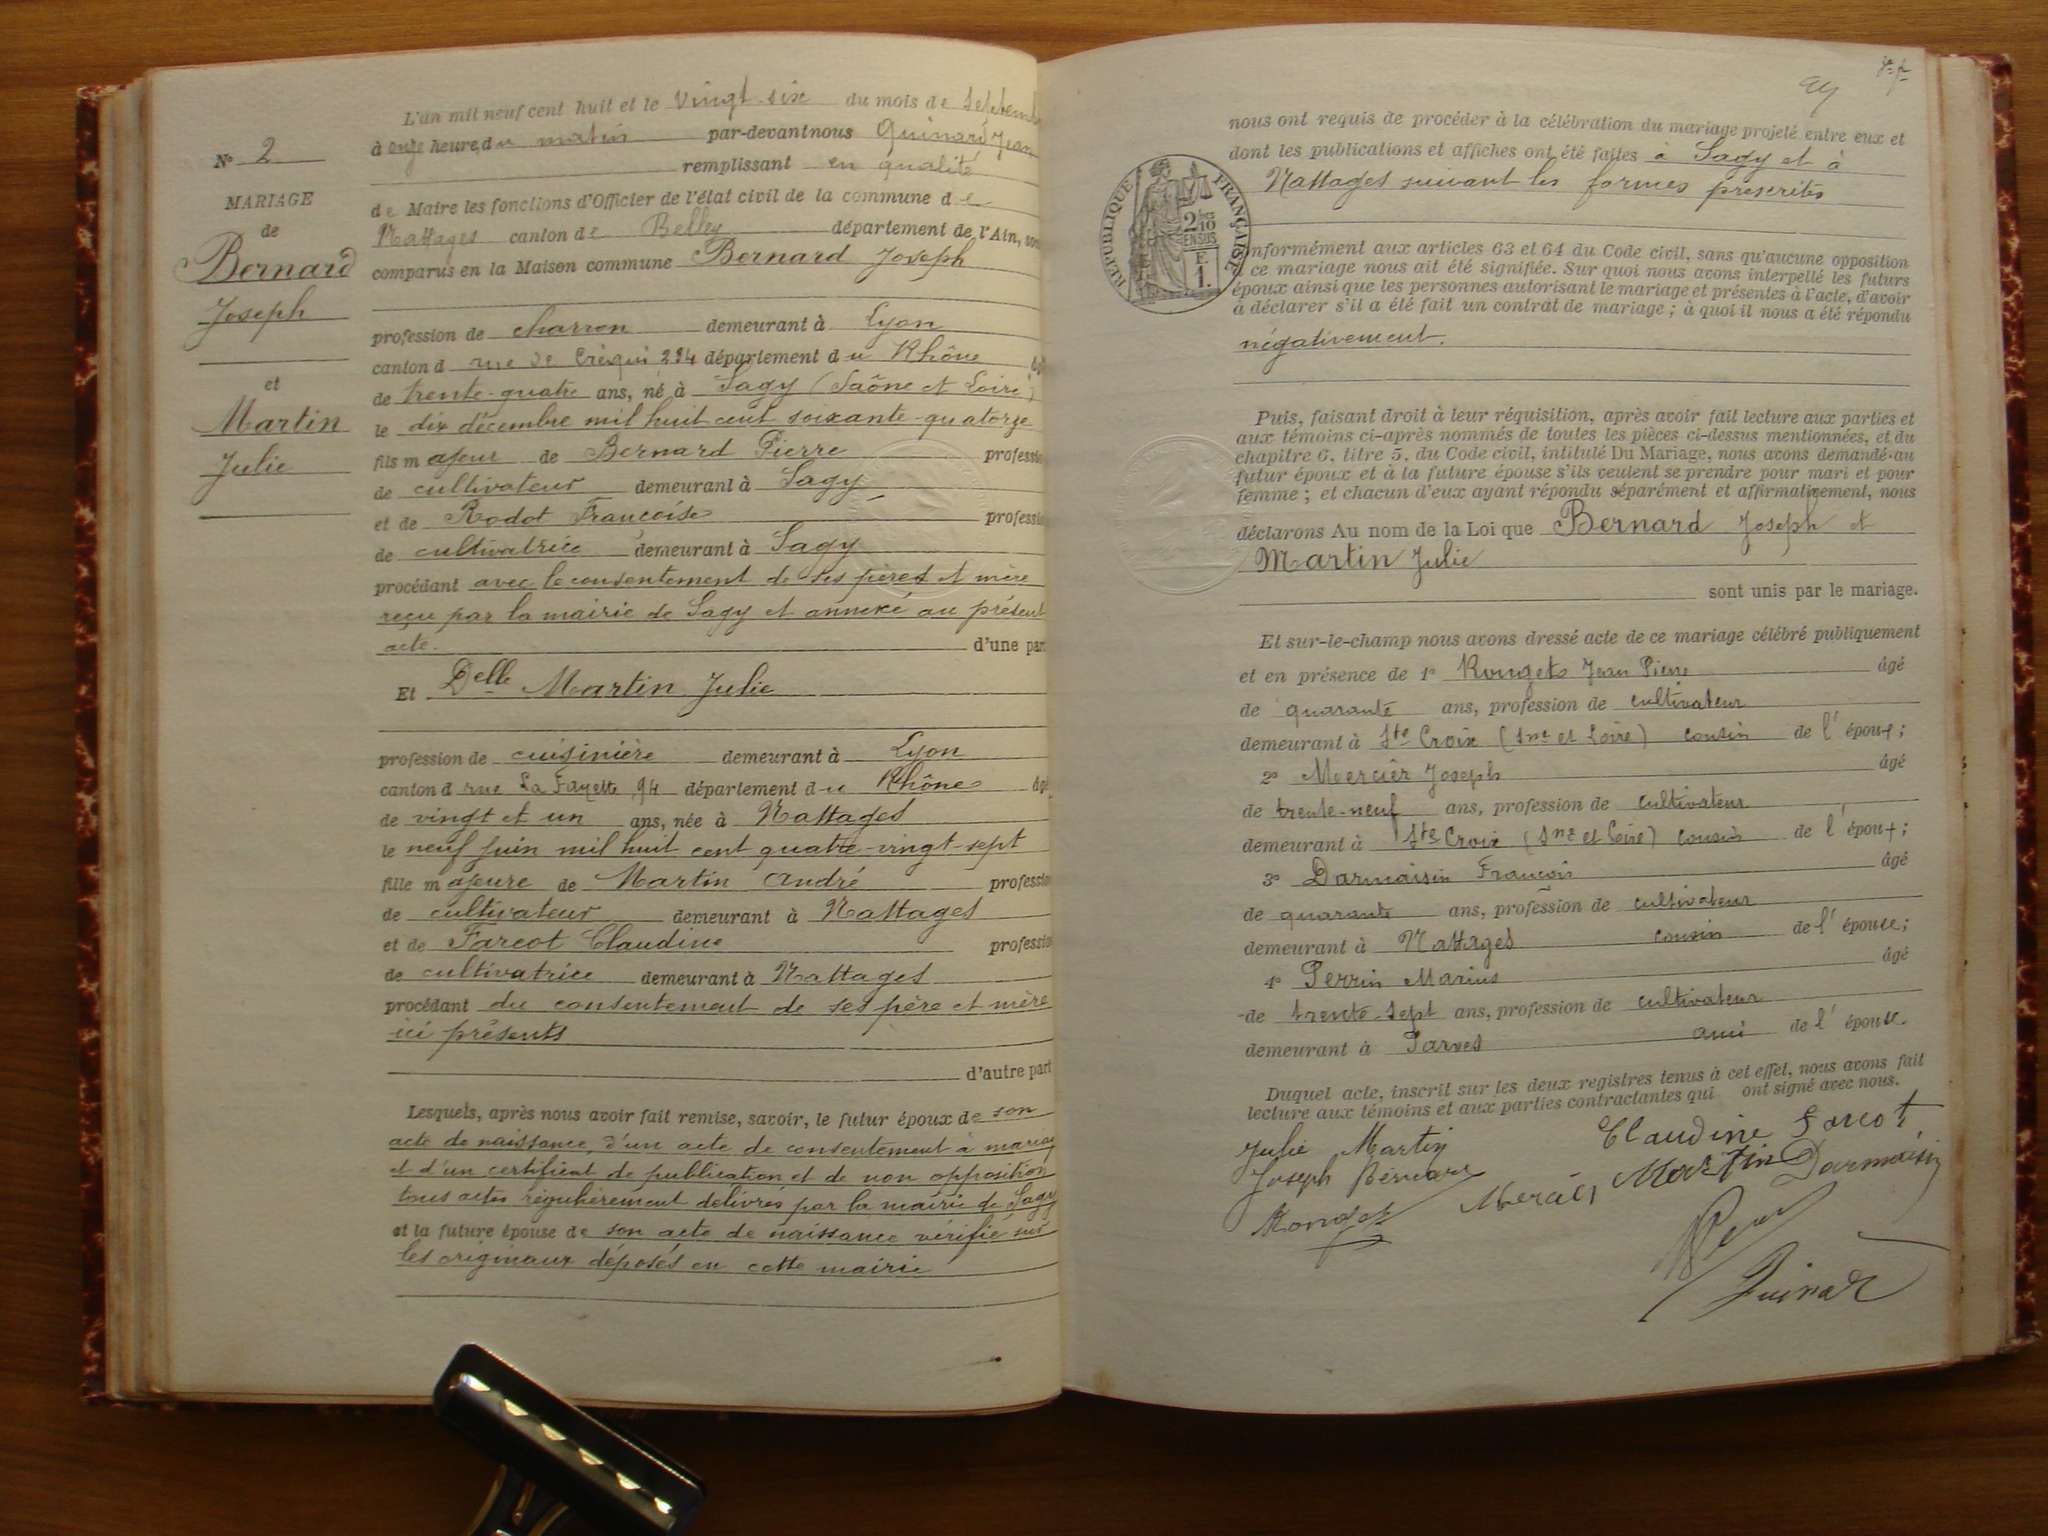 L'an mil neuf cent huit et le vingt-six du mois de septembre
à onze heure du matin par-devant nous Quinard Jean
remplissant en qualité
de Maire les fonctions d'Officier de l'état civil de la commune de
Nattages canton de Belley département de l'Ain, sont
comparus en la Maison commune Bernard Joseph
profession de charron demeurant à Lyon
canton d rue de Créqui 294 département du Rhône
de trente-quatre ans, né à Sagy (Saône et Loire)
le dix décembre mil huit cent soixante-quatorze
fils majeur de Bernard Pierre profession
de cultivateur demeurant à Sagy
et de Rodot Françoise profession
de cultivatrice demeurant à Sagy
procédant avec le consentement de ses pères et mère
reçu par la mairie de Sagy et annexé au présent
acte. d'une part
Et Delle Martin Julie
profession de cuisinière demeurant à Lyon
canton d rue La Fayette 94 département du Rhône âgé
de vingt et un ans, née à Nattages
le neuf juin mil huit cent quatre-vingt-sept
fille majeure de Martin André profession
de cultivateur demeurant à Nattages
et de Farcot Claudine profession
de cultivatrice demeurant à Nattages
procédant du consentement de ses père et mère
ici présents
d'autre part
Lesquels, après nous avoir fait remise, savoir, le futur époux de son
acte de naissance, d'un acte de consentement à mariage
et d'un certificat de publication et de non opposition
tous actes régulièrement délivrés par la mairie de Sagy
et la future épouse de son acte de naissance vérifié sur
les originaux déposés en cette mairie
No 2
MARIAGE
de
Bernard
Joseph
et
Martin
Julie
nous ont requis de procéder à la célébration du mariage projeté entre eux et
dont les publications et affiches ont été faites à Sagy et à
Nattages suivant les formes prescrites
RÉPUBLIQUE FRANÇAISE
2/10
EN SUS
F.
1.
onformément aux articles 63 et 64 du Code civil, sans qu'aucune opposition
à ce mariage nous ait été signifiée. Sur quoi nous avons interpellé les futurs
époux ainsi que les personnes autorisant le mariage et présentes à l'acte, d'avoir
à déclarer s'il a été fait un contrat de mariage ; à quoi il nous a été répondu
négativement.
Puis, faisant droit à leur réquisition, après avoir fait lecture aux parties et
aux témoins ci-après nommés de toutes les pièces ci-dessus mentionnées, et du
chapitre 6, titre 5, du Code civil, intitulé Du Mariage, nous avons demandé au
futur époux et à la future épouse s'ils veulent se prendre pour mari et pour
femme ; et chacun d'eux ayant répondu séparément et affirmativement, nous
déclarons Au nom de la Loi que Bernard Joseph et
Martin Julie
sont unis par le mariage.
Et sur-le-champ nous avons dressé acte de ce mariage célébré publiquement
et en présence de 1º Rouget Jean Pierre âgé
de quarante ans, profession de cultivateur
demeurant à Ste Croix (Sne et Loire) cousin de l'époux;
2º Mercier Joseph âgé
de trente-neuf ans, profession de cultivateur
demeurant à Ste Croix (Sne et Loire) cousin de l'époux;
3º Darmaisin François âgé
de quarante ans, profession de cultivateur
demeurant à Nattages cousin de l'épouse;
4º Perrin Marius âgé
de trente-sept ans, profession de cultivateur
demeurant à Parves ami de l'épouse.
Duquel acte, inscrit sur les deux registres tenus à cet effet, nous avons fait
lecture aux témoins et aux parties contractantes qui ont signé avec nous.
Julie Martin Claudine Farcot
Joseph Bernard Martin Darmaisin
Rouget Mercier
Quinard